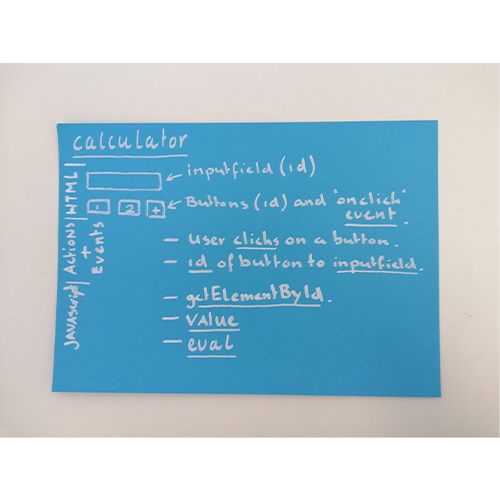 calculator
HTML
inputfield (id)
- 2 +
Buttons (id) and "onclick"
event.
Actions
+
Events
- User clicks on a button.
- id of button to inputfield.
JAVAscript
- getElementById.
- value
- eval